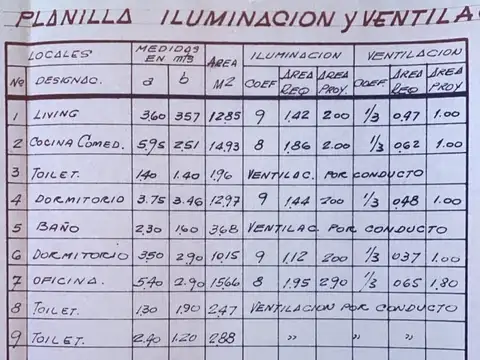 PLANILLA ILUMINACION y VENTILA
LOCALES MEDIDAS EN mts AREA M2 ILUMINACION VENTILACION
Nº DESIGNAC. a b COEF AREA REQ AREA PROY. COEF AREA REQ AREA PROY
1 LIVING 3.60 3.57 12.85 9 1.42 2.00 1/3 0.47 1.00
2 COCINA COMED. 5.95 2.51 14.93 8 1.86 2.00 1/3 0.62 1.00
3 TOILET. 1.40 1.40 1.96 VENTILAC. POR CONDUCTO
4 DORMITORIO 3.75 3.46 12.97 9 1.44 2.00 1/3 0.48 1.00
5 BAÑO 2.30 1.60 3.68 VENTILAC POR CONDUCTO
6 DORMITORIO 3.50 2.90 10.15 9 1.12 2.00 1/3 0.37 1.00
7 OFICINA. 5.40 2.90 15.66 8 1.95 2.90 1/3 0.65 1.80
8 TOILET. 1.30 1.90 2.47 VENTILACION POR CONDUCTO
9 TOILET. 2.40 1.20 2.88 " " "